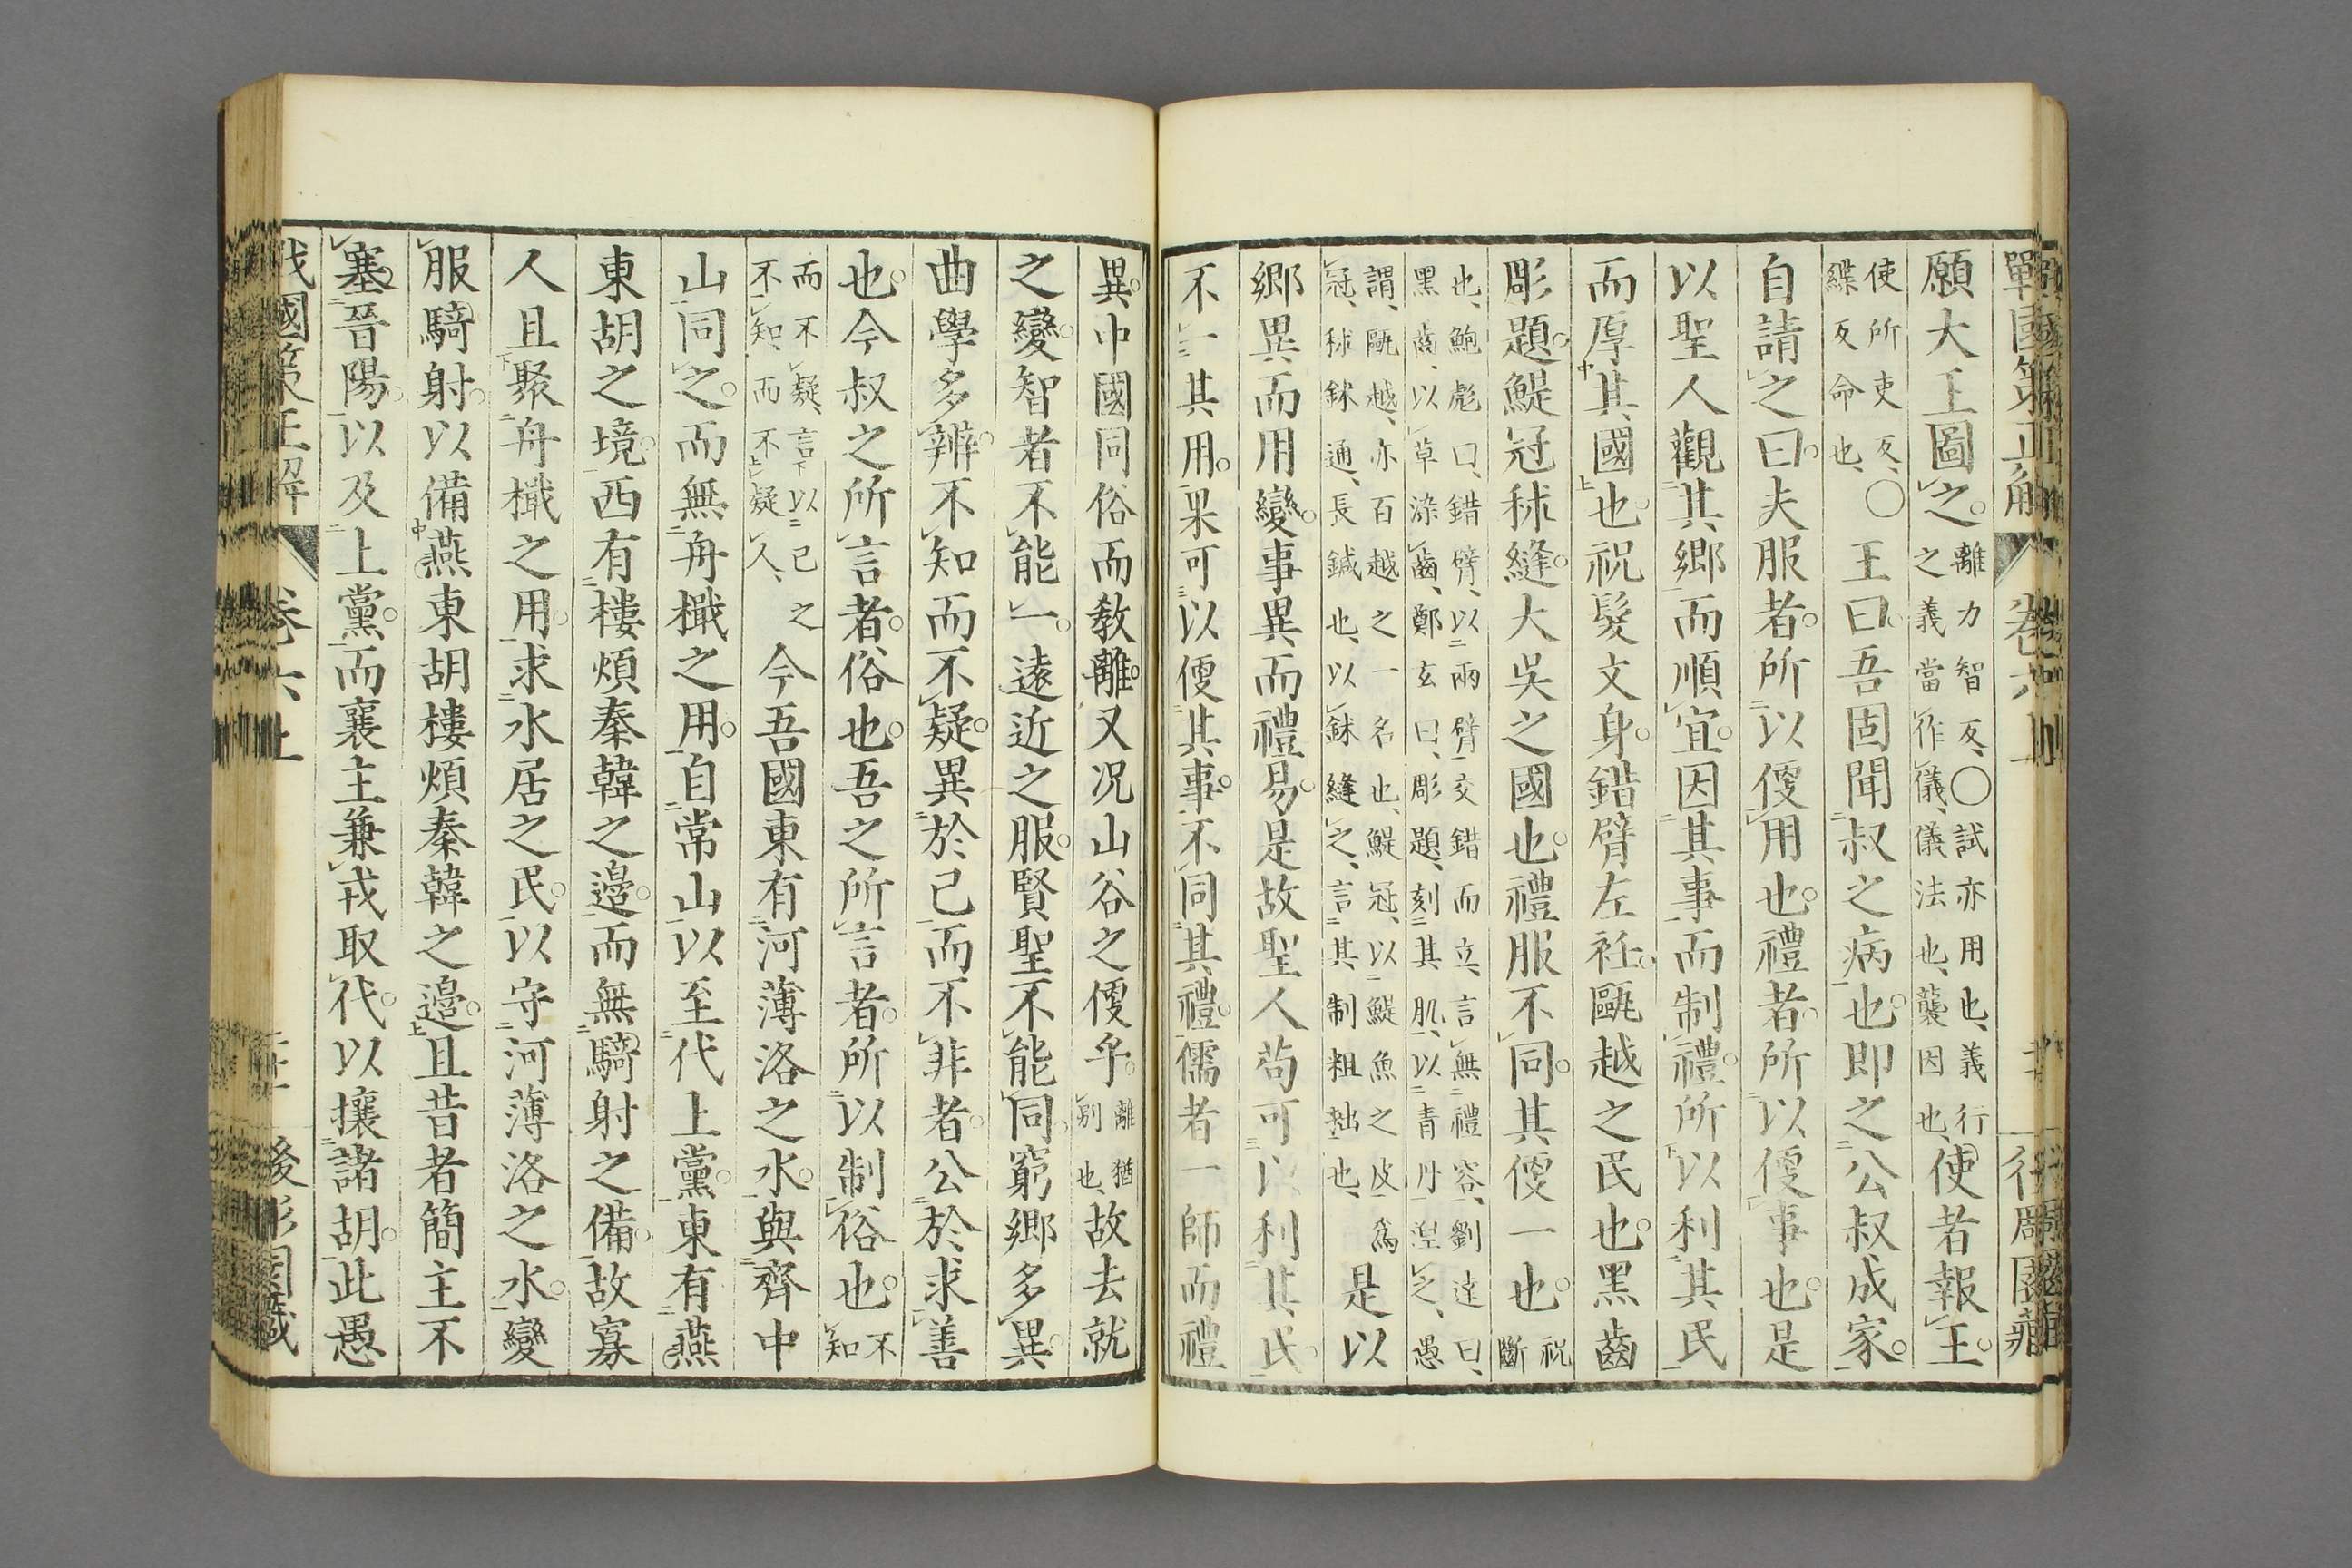 戰國策正解 卷六上
願大王圖之。離力智反、○試亦用也、義行之義當作儀、儀法也、襲因也、使者報王。
使所吏反、緤反命也、○王曰。吾固聞叔之病也。即之公叔成家。
自請之曰。夫服者。所以便用也。禮者。所以便事也。是
以聖人觀其鄉而順宜。因其事而制禮。所以利其民
而厚其國也。祝髮文身。錯臂左衽。甌越之民也。黑齒
彫題。鯷冠秫縫。大吳之國也。禮服不同。其便一也。祝斷
也、鮑彪曰、錯臂、以兩臂交錯而立、言無禮容、劉逵曰、
黑齒、以草染齒、鄭玄曰、彫題、刻其肌、以青丹涅之、愚
謂、甌越、亦百越之一名也、鯷冠、以鯷魚之皮為
冠、秫鉥通、長鍼也、以鉥縫之、言其制粗拙也、是以
鄉異而用變。事異而禮易。是故聖人苟可以利其民。
不一其用。果可以便其事。不同其禮。儒者一師而禮
異。中國同俗而教離。又况山谷之便乎。離猶別也、故去就
之變。智者不能一。遠近之服。賢聖不能同。窮鄉多異。
曲學多辨。不知而不疑。異於己而不非者。公於求善
也。今叔之所言者。俗也。吾之所言者。所以制俗也。不知
而不疑、言以己之不知、而不疑人、今吾國東有河薄洛之水。與齊中
山同之。而無舟檝之用。自常山以至代上黨。東有燕
東胡之境。西有樓煩秦韓之邊。而無騎射之備。故寡
人且聚舟檝之用。求水居之民。以守河薄洛之水。變
服騎射。以備燕東胡樓煩秦韓之邊。且昔者簡主不
塞晉陽。以及上黨。而襄主兼戎取代。以攘諸胡。此愚
戰國策正解 卷六上 後彫園藏